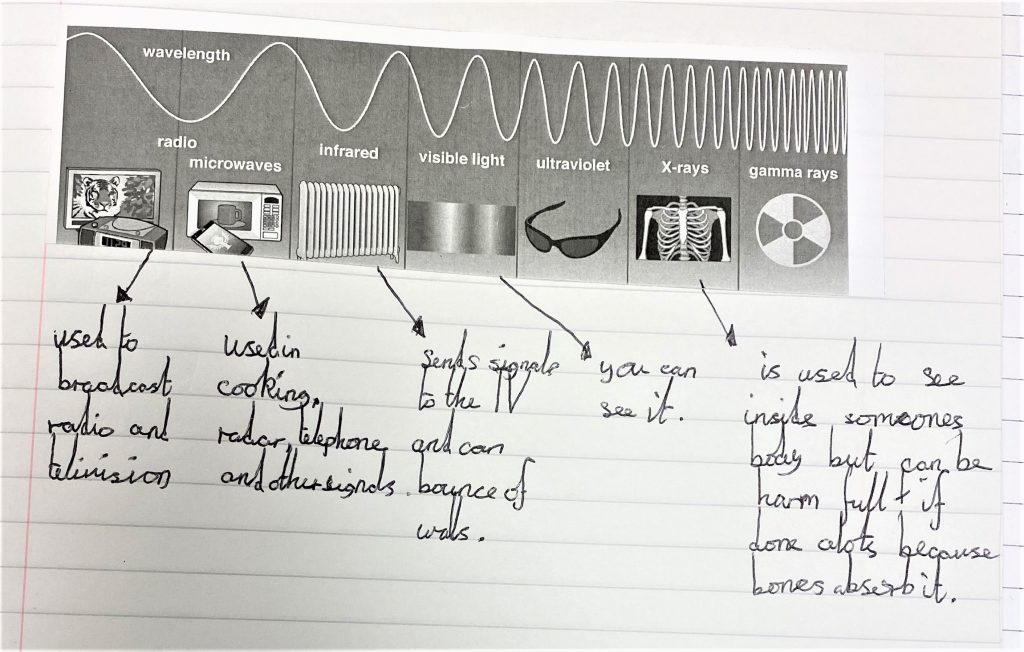 wavelength
radio
microwaves
infrared
visible light
ultraviolet
X-rays
gamma rays
used to
broadcast
radio and
telivision
Used in
cooking,
radar, telephone
and other signals.
Sends signals
to the TV
and can
bounce of
walls.
you can
see it.
is used to see
inside someones
body but can be
harm full + if
done alots because
bones absorb it.